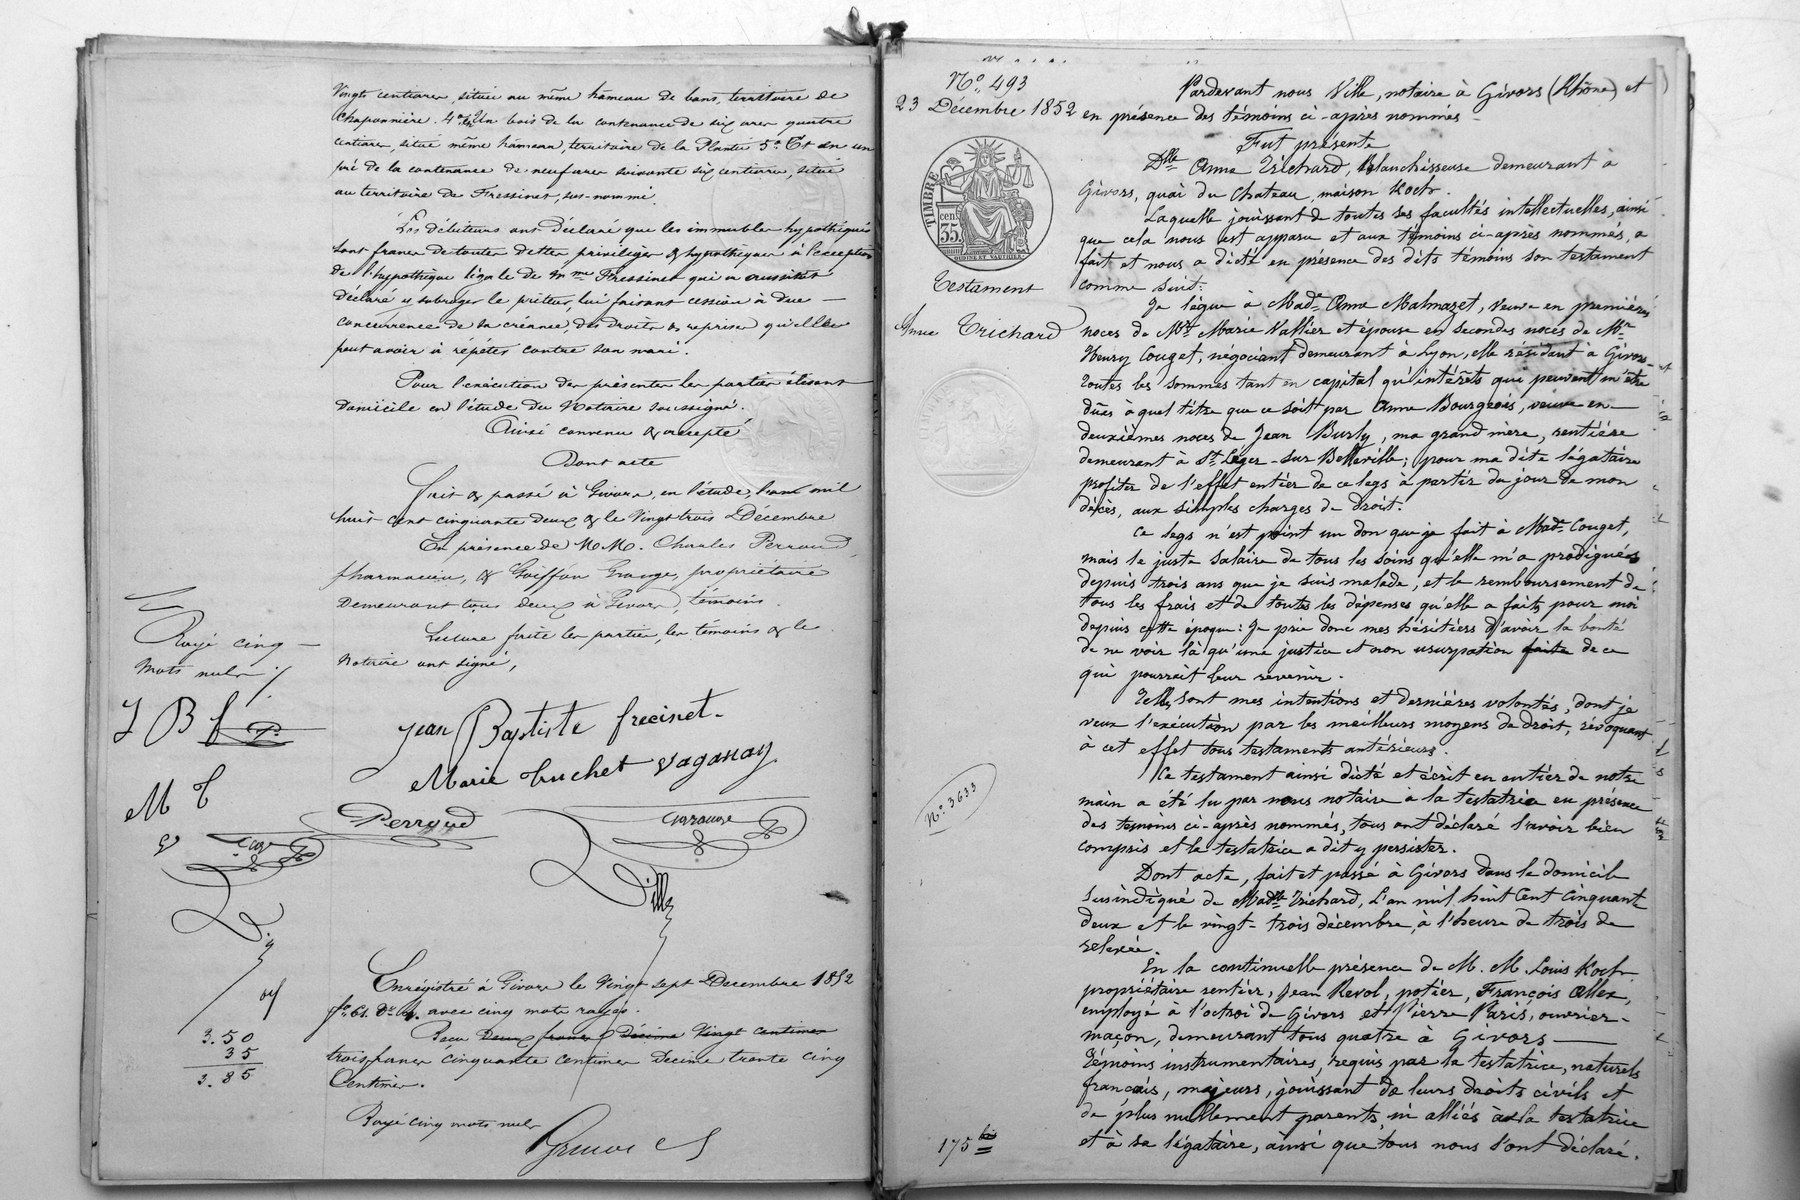 Vingt centiares, située au même hameau de bans, territoire de
Chaponnière. 4° Un bois de la contenance de six ares quatre
centiares, situé même hameau, territoire de la Plante 5° Et en un
pré de la contenance de neuf ares soixante six centiares, situé
au territoire de Fressinet, sus-nommé.
Les débiteurs ont déclaré que les immeubles hypothéqués
sont francs de toutes dettes privilégiées & hypothèques à l'exception
de l'hypothèque légale de Mme Fressinet qui a aussitôt
déclaré y subroger le prêteur, lui faisant cession à due —
concurrence de sa créance, des droits & reprises qu'elle
peut avoir à répéter contre son mari.
Pour l'exécution des présentes les parties élisent
domicile en l'étude du Notaire soussigné.
Ainsi convenu & accepté
Dont acte
Fait & passé à Givors, en l'étude, l'an mil
huit cent cinquante deux & le Vingt trois Décembre
En présence de MM. Charles Perraud,
pharmacien, & Goiffon Grange, propriétaire
demeurant tous deux à Givors, témoins.
Lecture faite les parties, les témoins & le
Notaire ont signé,
Rayé cinq —
mots nuls
J B f P
M T
V
Jean Baptiste frecinet.
Marie Truchet Vaganay
Perraud
Ville
Enregistré à Givors le Vingt sept Décembre 1852
f° 61. avec cinq mots rayés.
Reçu Deux francs Décime Vingt centimes
trois francs cinquante centimes décime trente cinq
Centimes.
3.50
35
3.85
Rayé cinq mots nuls
N° 493
23 Décembre 1852
TIMBRE
cen.
35
OUDINET VAUTHIER
Testament
Anne Trichard
N° 3633
175 bis
Pardevant nous Ville, notaire à Givors (Rhône) et
en présence des témoins ci-après nommés
Fut présente
Dlle Anne Trichard, blanchisseuse demeurant à
Givors, quai du Chateau, maison Koch.
Laquelle jouissant de toutes ses facultés intellectuelles, ainsi
que cela nous est apparu et aux témoins ci-après nommés, a
fait et nous a dicté en présence des dits témoins son testament
comme suit:
Je lègue à Made Anne Malmazet, veuve en premières
noces de Mr Marie Vallier et épouse en secondes noces de Mr
Henry Couget, négociant demeurant à Lyon, elle résidant à Givors
toutes les sommes tant en capital qu'intérêts qui peuvent m'être
dûes à quel titre que ce soit par Anne Bourgeois, veuve en —
deuxièmes noces de Jean Burly, ma grand mère, rentière
demeurant à St Léger-sur-Belleville; pour ma dite légataire
profiter de l'effet entier de ce legs à partir du jour de mon
décès, aux simples charges de droit.
Ce legs n'est point un don que je fait à Made Couget,
mais le juste salaire de tous les soins qu'elle m'a prodigués
depuis trois ans que je suis malade, et le remboursement de
tous les frais et de toutes les dépenses qu'elle a faits pour moi
depuis cette époque: Je prie donc mes héritiers d'avoir la bonté
de ne voir là qu'une justice et non usurpation faite de ce
qui pourrait leur revenir.
Telles sont mes intentions et dernières volontés, dont je
veux l'exécution par les meilleurs moyens de droit, révoquant
à cet effet tous testaments antérieurs.
Ce testament ainsi dicté et écrit en entier de notre
main a été lu par nous notaire à la testatrice en présence
des témoins ci-après nommés, tous ont déclaré l'avoir bien
compris et la testatrice a dit y persister.
Dont acte, fait et passé à Givors dans le domicile
susindiqué de Madlle Trichard, L'an mil huit Cent Cinquante
deux et le vingt-trois décembre, à l'heure de trois de
relevée.
En la continuelle présence de M. M. Louis Koch
propriétaire rentier, Jean Revol, potier, François Allex,
employé à l'octroi de Givors et Pierre Paris, ouvrier-
maçon, demeurant tous quatre à Givors —
Témoins instrumentaires, requis par la testatrice, naturels
français, majeurs, jouissant de leurs droits civils et
de plus nullement parents, ni alliés à la testatrice
et à sa légataire, ainsi que tous nous l'ont déclaré.